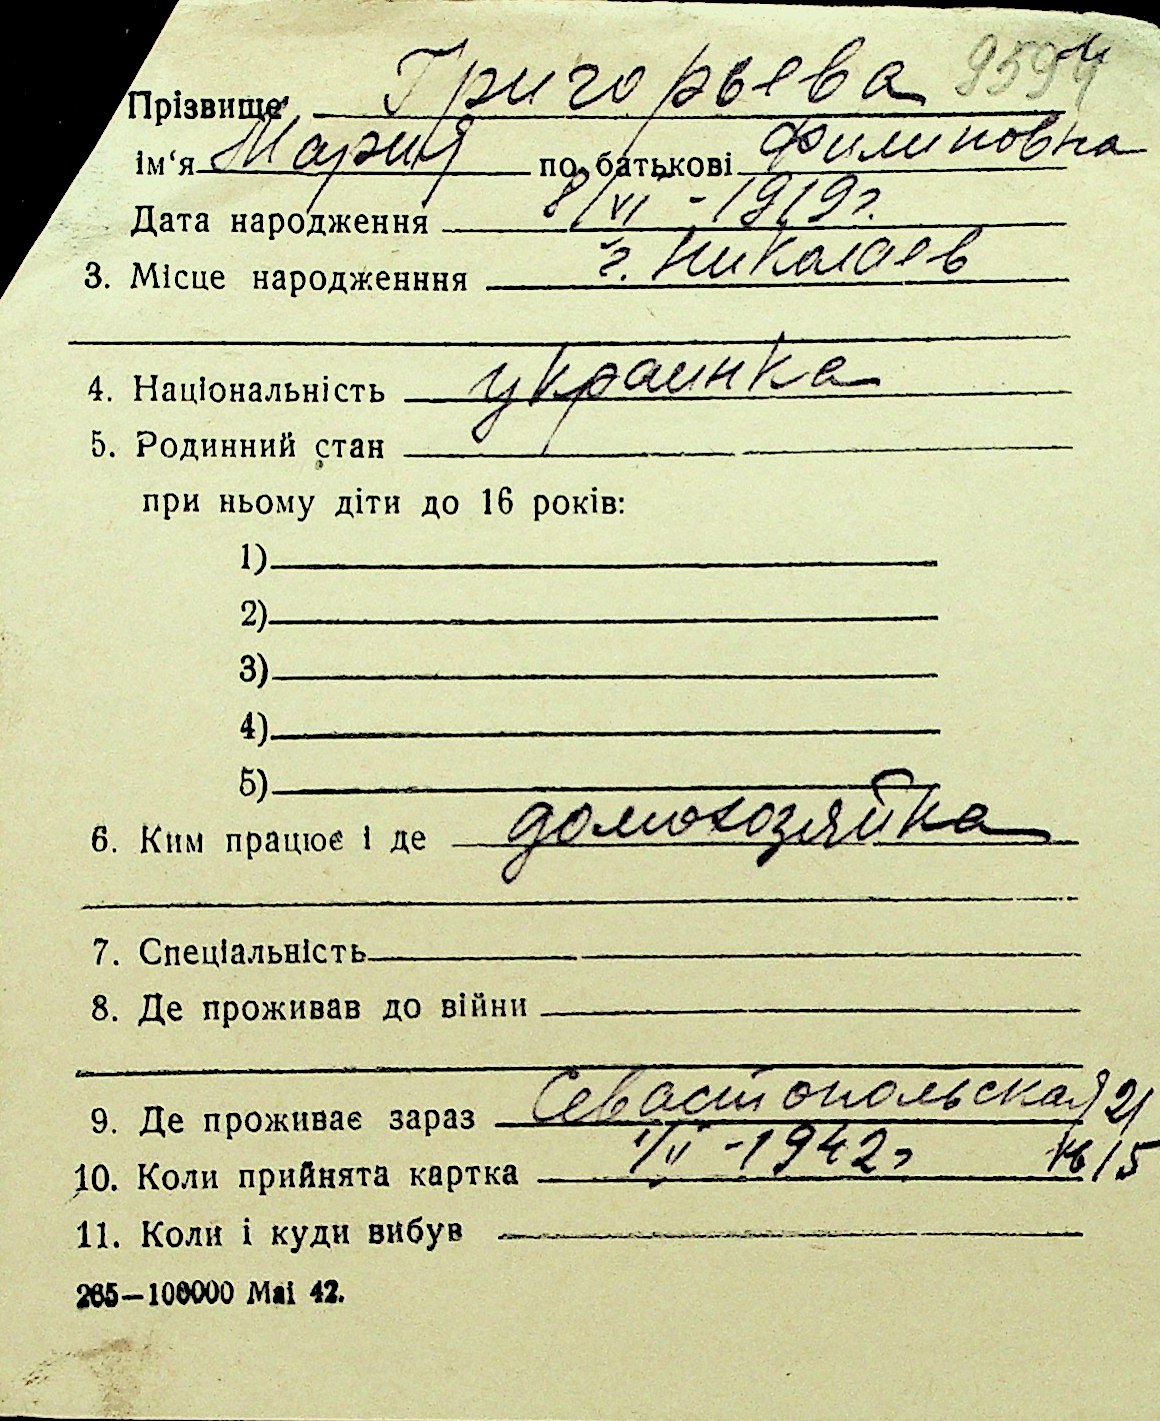 Прізвище Григорьева 9594
Ім‘я Мария по батькові Филиповна
Дата народження 8/VI - 1919 г.
3. Місце народженння г. Николаев
4. Національність украинка
5. Родинний стан
при ньому діти до 16 років:
1)
2)
3)
4)
5)
6. Ким працює і де домохозяйка
7. Спеціальність
8. Де проживав до війни
9. Де проживає зараз Севастопольская 21
10. Коли прийнята картка -1942 г
11. Коли і куди вибув
265—100000 Mai 42.